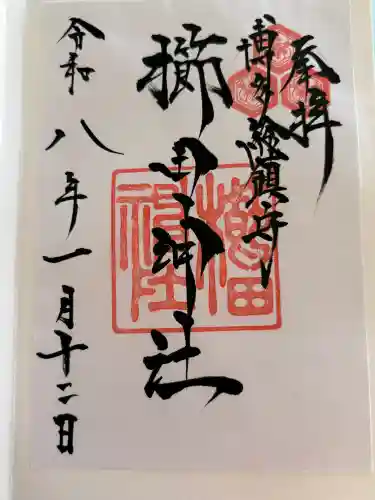 奉拝
博多総鎮守
櫛田神社
令和八年一月十二日